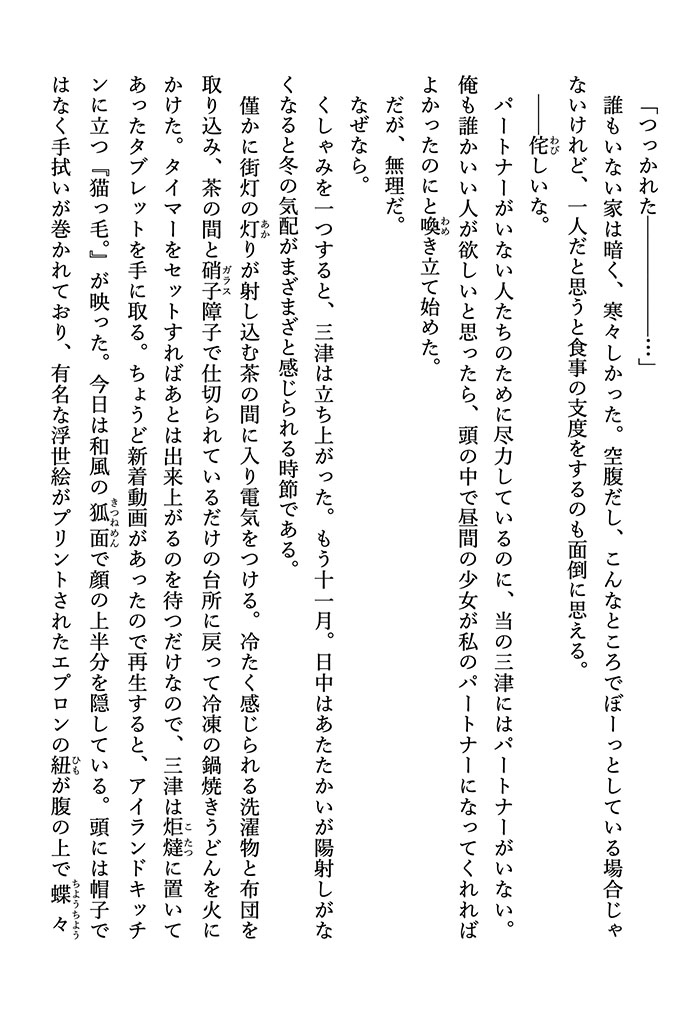 「つっかれた――――――…」
誰もいない家は暗く、寒々しかった。空腹だし、こんなところでぼーっとしている場合じゃ
ないけれど、一人だと思うと食事の支度をするのも面倒に思える。
――侘しいな。
パートナーがいない人たちのために尽力しているのに、当の三津にはパートナーがいない。
俺も誰かいい人が欲しいと思ったら、頭の中で昼間の少女が私のパートナーになってくれれば
よかったのにと喚き立て始めた。
だが、無理だ。
なぜなら。
くしゃみを一つすると、三津は立ち上がった。もう十一月。日中はあたたかいが陽射しがな
くなると冬の気配がまざまざと感じられる時節である。
僅かに街灯の灯りが射し込む茶の間に入り電気をつける。冷たく感じられる洗濯物と布団を
取り込み、茶の間と硝子障子で仕切られているだけの台所に戻って冷凍の鍋焼きうどんを火に
かけた。タイマーをセットすればあとは出来上がるのを待つだけなので、三津は炬燵に置いて
あったタブレットを手に取る。ちょうど新着動画があったので再生すると、アイランドキッチ
ンに立つ『猫っ毛。』が映った。今日は和風の狐面で顔の上半分を隠している。頭には帽子で
はなく手拭いが巻かれており、有名な浮世絵がプリントされたエプロンの紐が腹の上で蝶々